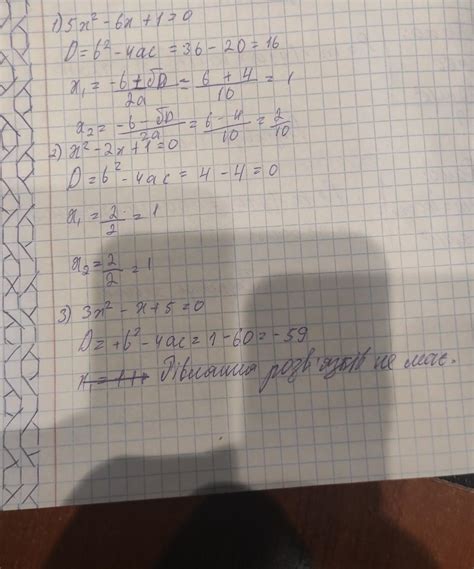 1) 5x² - 6x + 1 = 0
D = b² - 4ac = 36 - 20 = 16
x₁ = (-b + √D)/2a = (6 + 4)/10 = 1
x₂ = (-b - √D)/2a = (6 - 4)/10 = 2/10
2) x² - 2x + 1 = 0
D = b² - 4ac = 4 - 4 = 0
x₁ = 2/2 = 1
x₂ = 2/2 = 1
3) 3x² - x + 5 = 0
D = +b² - 4ac = 1 - 60 = -59
Рівняння розв'язків не має.